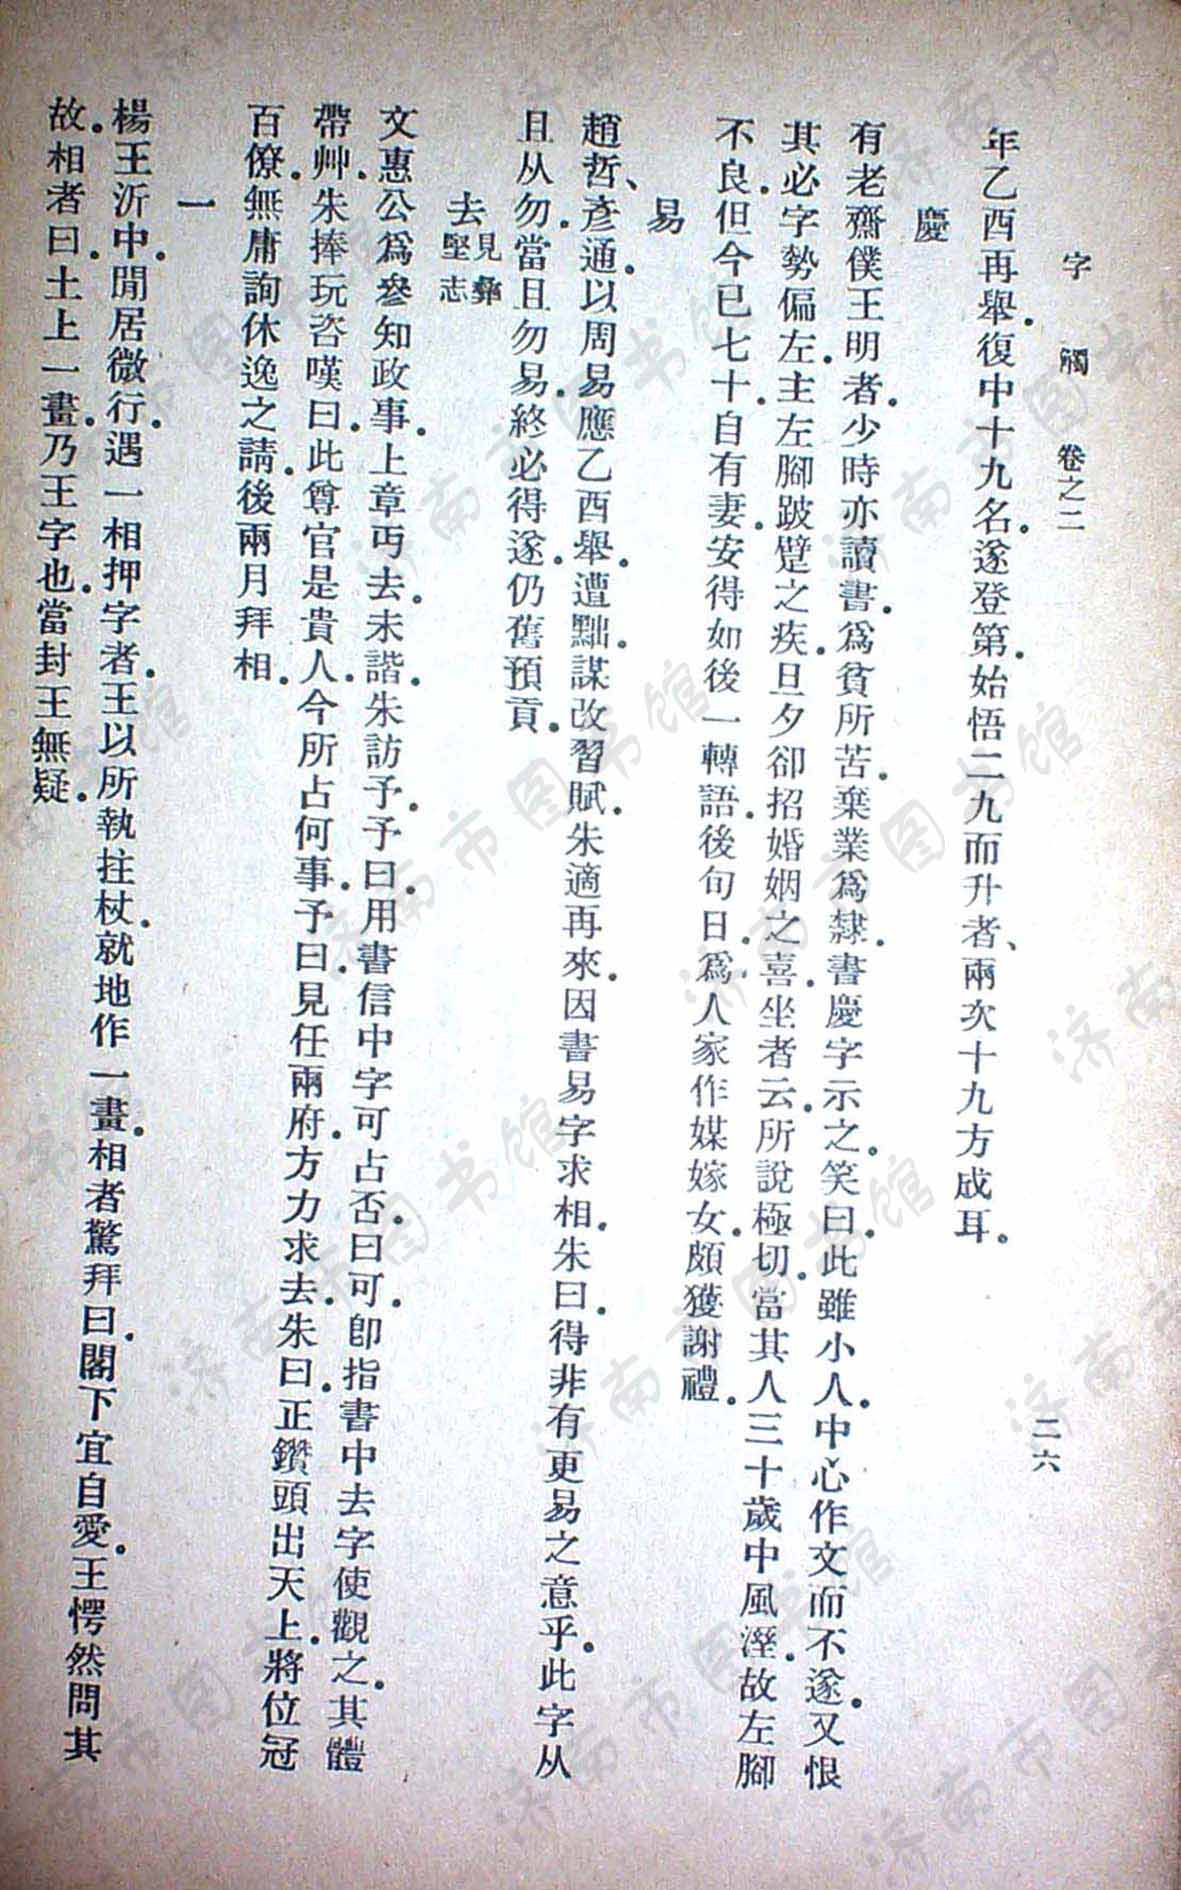 字觸　卷之二　二六
年乙酉再舉.復中十九名.遂登第.始悟二九而升者、兩次十九方成耳。
慶
有老齋僕王明者.少時亦讀書.爲貧所苦.棄業爲隸.書慶字示之.笑曰.此雖小人.中心作文而不遂.又恨
其必字勢偏左.主左腳跛躄之疾.旦夕卻招婚姻之喜.坐者云.所說極切.當其人三十歲中風溼.故左腳
不良.但今已七十.自有妻.安得如後一轉語.後句日.爲人家作媒嫁女.頗獲謝禮.
易
趙哲、彥通.以周易應乙酉舉.遭黜.謀改習賦.朱適再來.因書易字求相.朱曰.得非有更易之意乎.此字从
且从勿.當且勿易.終必得遂.仍舊預貢.
去見彝堅志
文惠公爲參知政事.上章丐去.未諧.朱訪予.予曰.用書信中字可占否.曰可.卽指書中去字使觀之.其體
帶艸.朱捧玩咨嘆曰.此尊官是貴人.今所占何事.予曰.見任兩府.方力求去.朱曰.正鑽頭出天上.將位冠
百僚.無庸詢休逸之請.後兩月拜相.
一
楊王沂中.閒居微行.遇一相押字者.王以所執拄杖.就地作一畫.相者驚拜曰.閣下宜自愛.王愕然問其
故.相者曰.土上一畫.乃王字也.當封王無疑.